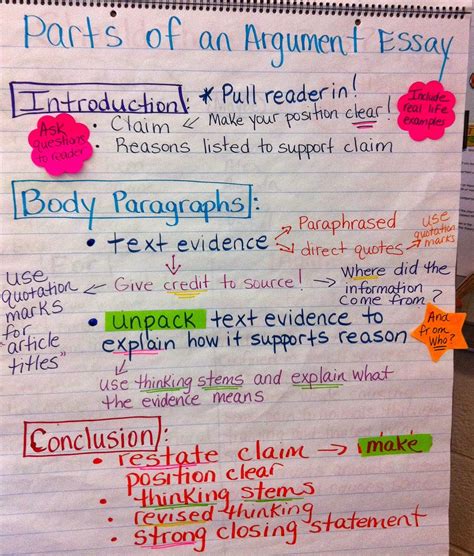 Parts of an Argument Essay
Introduction: * Pull reader in!
Include
real life
examples
Ask
questions
to reader
• Claim ← Make your position clear!
• Reasons listed to support claim
Body Paragraphs:
• text evidence → Paraphrased
→ direct quotes →
use
quotation
marks
Give credit to source! → Where did the
information
come from?
use
quotation
marks
for
"article
titles"
• unpack text evidence to
explain how it supports reason
And
from
Who?
use thinking stems and explain what
the evidence means
Conclusion:
• restate claim → make
position clear
• thinking stems
• revised thinking
• strong closing statement